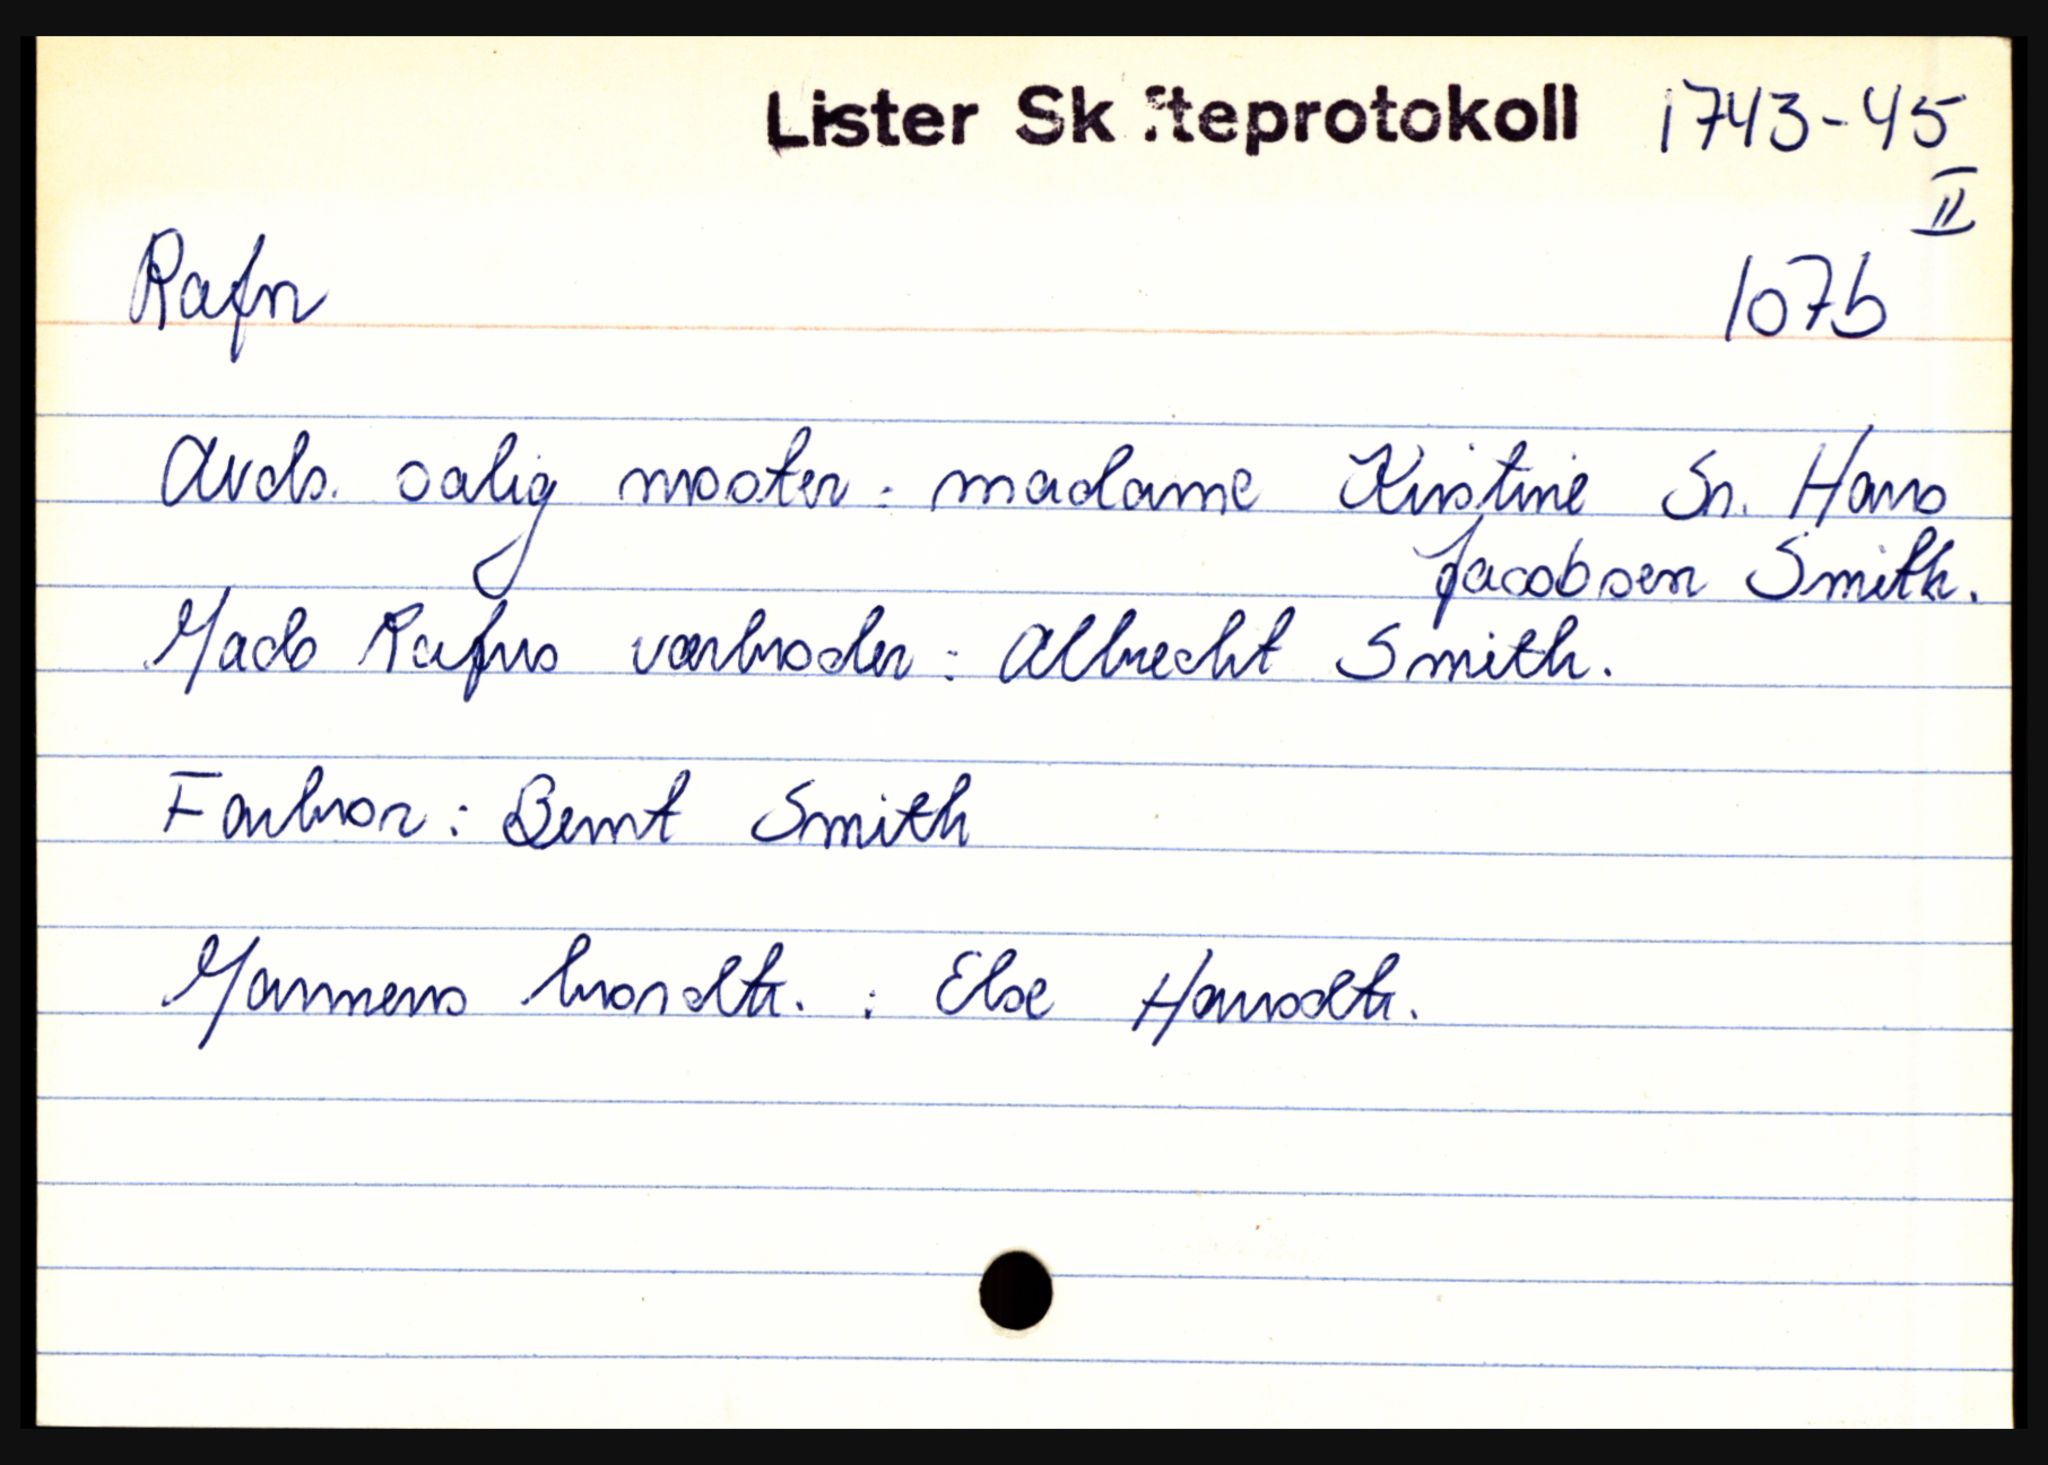 Lister Skifteprotokoll 1743-45
II
Rafn 107b
Avds. salig moster: madame Kirstine Sr. Hans
Jacobsen Smith.
Mads Rafns værbroder: Albrecht Smith.
Farbror: Bernt Smith
Mannens brordtr. : Else Hansdtr.